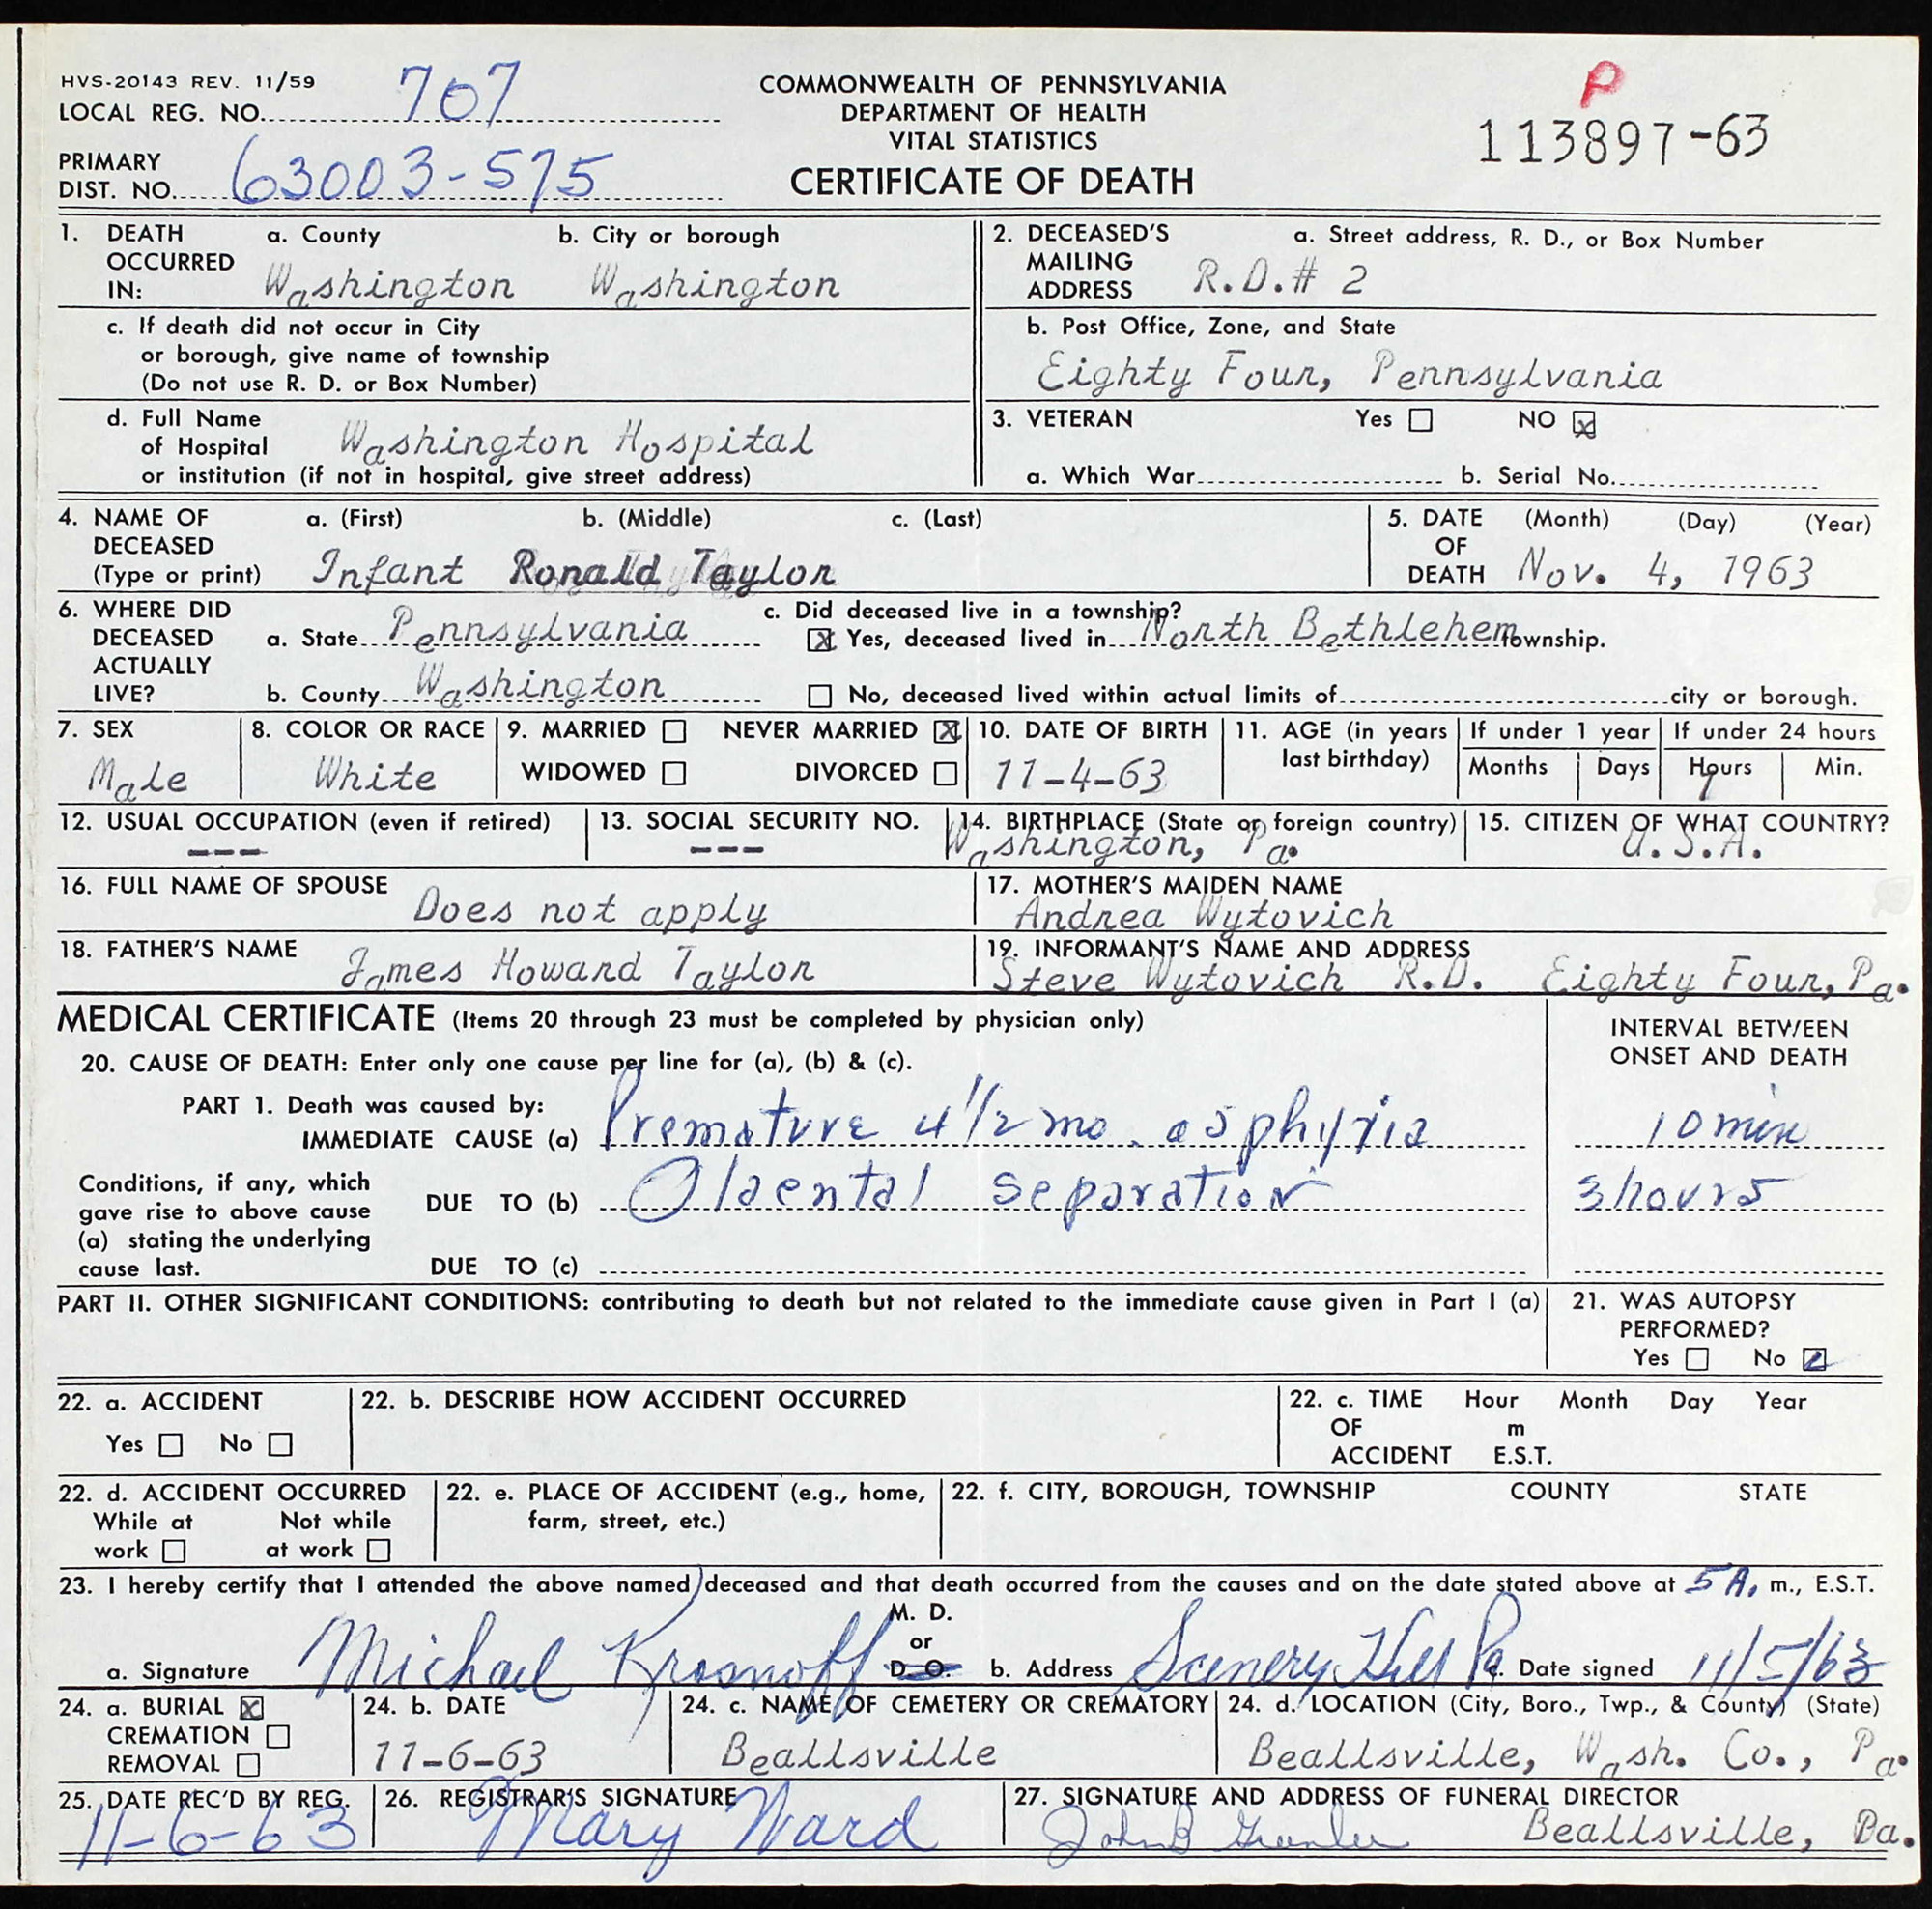 HVS-20143 REV. 11/59
LOCAL REG. NO. 707
PRIMARY
DIST. NO. 63003-575
COMMONWEALTH OF PENNSYLVANIA
DEPARTMENT OF HEALTH
VITAL STATISTICS
CERTIFICATE OF DEATH
P
113897-63
1. DEATH OCCURRED IN: a. County Washington b. City or borough Washington
c. If death did not occur in City
or borough, give name of township
(Do not use R. D. or Box Number)
d. Full Name
of Hospital Washington Hospital
or institution (if not in hospital, give street address)
2. DECEASED'S MAILING ADDRESS a. Street address, R. D., or Box Number
R.D.# 2
b. Post Office, Zone, and State
Eighty Four, Pennsylvania
3. VETERAN Yes ☐ NO ☒
a. Which War b. Serial No.
4. NAME OF DECEASED (Type or print) a. (First) b. (Middle) c. (Last)
Infant Ronald Taylor
5. DATE OF DEATH (Month) (Day) (Year)
Nov. 4, 1963
6. WHERE DID DECEASED ACTUALLY LIVE?
a. State Pennsylvania
b. County Washington
c. Did deceased live in a township?
☒ Yes, deceased lived in North Bethlehem township.
☐ No, deceased lived within actual limits of city or borough.
7. SEX
Male
8. COLOR OR RACE
White
9. MARRIED ☐ NEVER MARRIED ☒
WIDOWED ☐ DIVORCED ☐
10. DATE OF BIRTH
11-4-63
11. AGE (in years last birthday)
If under 1 year
Months Days
If under 24 hours
Hours Min.
12. USUAL OCCUPATION (even if retired)
---
13. SOCIAL SECURITY NO.
---
14. BIRTHPLACE (State or foreign country)
Washington, Pa.
15. CITIZEN OF WHAT COUNTRY?
U.S.A.
16. FULL NAME OF SPOUSE
Does not apply
17. MOTHER'S MAIDEN NAME
Andrea Wytovich
18. FATHER'S NAME
James Howard Taylor
19. INFORMANT'S NAME AND ADDRESS
Steve Wytovich R.D. Eighty Four, Pa.
MEDICAL CERTIFICATE (Items 20 through 23 must be completed by physician only)
INTERVAL BETWEEN
ONSET AND DEATH
20. CAUSE OF DEATH: Enter only one cause per line for (a), (b) & (c).
PART 1. Death was caused by:
IMMEDIATE CAUSE (a) Premature 4 1/2 mo. asphyxia 10 min
Conditions, if any, which
gave rise to above cause
(a) stating the underlying
cause last.
DUE TO (b) Plaental separation 3 hours
DUE TO (c)
PART II. OTHER SIGNIFICANT CONDITIONS: contributing to death but not related to the immediate cause given in Part I (a)
21. WAS AUTOPSY
PERFORMED?
Yes ☐ No ☑
22. a. ACCIDENT
Yes ☐ No ☐
22. b. DESCRIBE HOW ACCIDENT OCCURRED
22. c. TIME OF ACCIDENT Hour Month Day Year
m
E.S.T.
22. d. ACCIDENT OCCURRED
While at work ☐ Not while at work ☐
22. e. PLACE OF ACCIDENT (e.g., home,
farm, street, etc.)
22. f. CITY, BOROUGH, TOWNSHIP COUNTY STATE
23. I hereby certify that I attended the above named deceased and that death occurred from the causes and on the date stated above at 5 A. m., E.S.T.
a. Signature Michael Krosnoff M. D. or D. O. b. Address Scenery Hill Pa c. Date signed 11/5/63
24. a. BURIAL ☒
CREMATION ☐
REMOVAL ☐
24. b. DATE
11-6-63
24. c. NAME OF CEMETERY OR CREMATORY
Beallsville
24. d. LOCATION (City, Boro., Twp., & County) (State)
Beallsville, Wash. Co., Pa.
25. DATE REC'D BY REG.
11-6-63
26. REGISTRAR'S SIGNATURE
Mary Ward
27. SIGNATURE AND ADDRESS OF FUNERAL DIRECTOR
John B Beallsville, Pa.